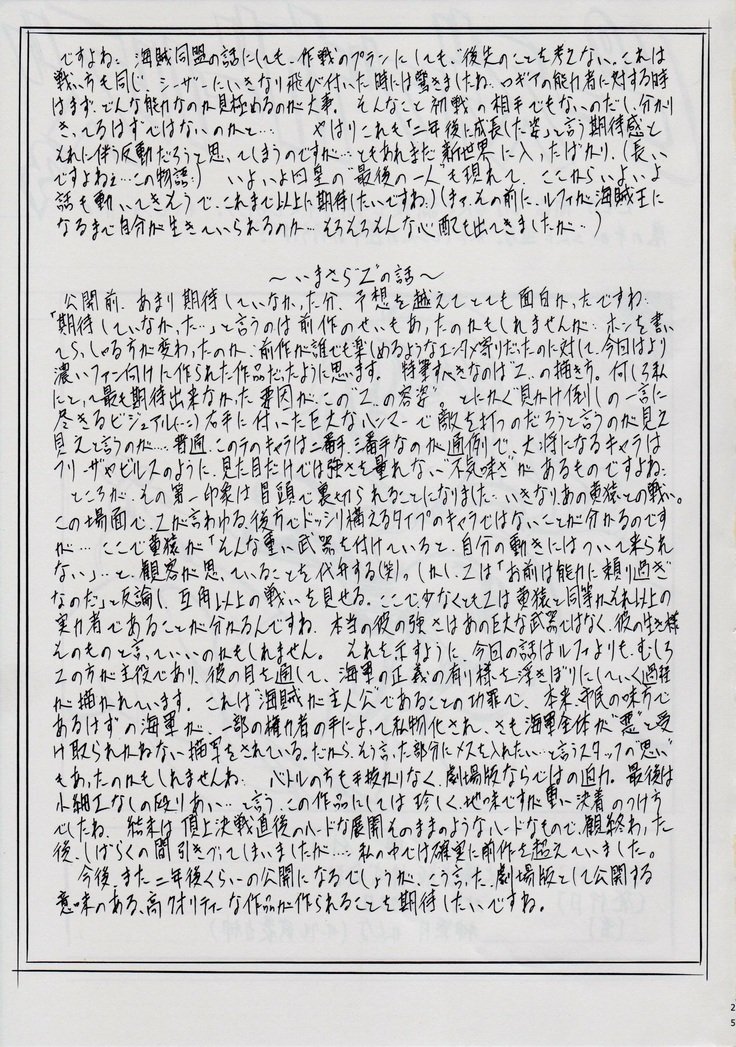 ですよね… 海賊同盟の話にしても、作戦のプランにしても、後先のことを考えない。これは
戦い方も同じ、シーザーにいきなり飛び付いた時には驚きましたね、ロギアの能力者に対する時
はまず、どんな能力なのか見極めるのが大事。そんなこと初戦の相手でもないのだし、分かり
きってるはずではないのかと… やはりこれも「二年後に成長した姿」と言う期待感と
それに伴う反動だろうと思ってしまうのですが…ともあれまだ新世界に入ったばかり、(長い
ですよねぇ…この物語) いよいよ四皇の“最後の一人”も現れて、ここからいよいよ
話も動いてきそうで、これまで以上に期待したいですね。(まァ、その前に、ルフィが海賊王に
なるまで自分が生きていられるのか…そろそろそんな心配も出てきましたが…)
～いまさら“Z”の話～
公開前、あまり期待していなかった分、予想を越えてとても面白かったですね…
「期待していなかった…」と言うのは前作のせいもあったのかもしれませんが…ホンを書い
てらっしゃる方が変わったのか、前作が誰でも楽しめるようなエンタメ寄りだったのに対して、今回はより
濃いファン向けに作られた作品だったように思います。 特筆すべきなのは“Z”の描き方。何しろ私
にとって最も期待出来なかった要因が、この“Zの容姿”。とにかく“見かけ倒し”の一言に
尽きるビジュアル(…) 右手に付いた巨大なハンマーで敵を打つのだろうと言うのが見え
見えと言うのが… 普通、このテのキャラは二番手、三番手なのが通例で、大将になるキャラは
フリーザやビルスのように、見た目だけでは強さを量れない“不気味さ”があるものですよね…
ところが、その第一印象は冒頭で裏切られることになりました…いきなりあの黄猿との戦い。
この場面で、Zが言わゆる後方でドッシリ構えるタイプのキャラではないことが分かるのです
が… ここで黄猿が「そんな重い武器を付けていると、自分の動きにはついて来られ
ない」…と、観客が思っていることを代弁する(笑)。しかし、Zは「お前は能力に頼り過ぎ
なのだ」と反論し、互角以上の戦いを見せる。ここで、少なくともZは黄猿と同等かそれ以上の
実力者であることが分かるんですね、本当の彼の強さはあの巨大な武器ではなく、彼の生き様
そのものと言っていいのかもしれません。 それを示すように、今回の話はルフィよりも、むしろ
Zの方が主役であり、彼の目を通して、海軍の正義の有り様を浮きぼりにしていく過程
が描かれています。 これは“海賊が主人公”であることの功罪で、本来、市民の味方で
あるはずの海軍が、一部の権力者の手によって私物化され、さも海軍全体が“悪”と受
け取られかねない描写をされている。だから、そう言った部分にメスを入れたい…と言うスタッフの“思い”
もあったのかもしれませんね… バトルの方も手抜かりなく、劇場版ならではの迫力。最後は
小細工なしの殴りあい…と言う、この作品にしては珍しく、地味ですが重い決着のつけ方
でしたね。 結末は頂上決戦直後のハードな展開そのままのようなハードなもので、観終わった
後、しばらくの間引きづってしまいましたが…私の中では確実に前作を超えていました。
今後、また二年後くらいの公開になるでしょうが、こう言った、劇場版として公開する
意味のある、高クオリティーな作品が作られることを期待したいですね。
25